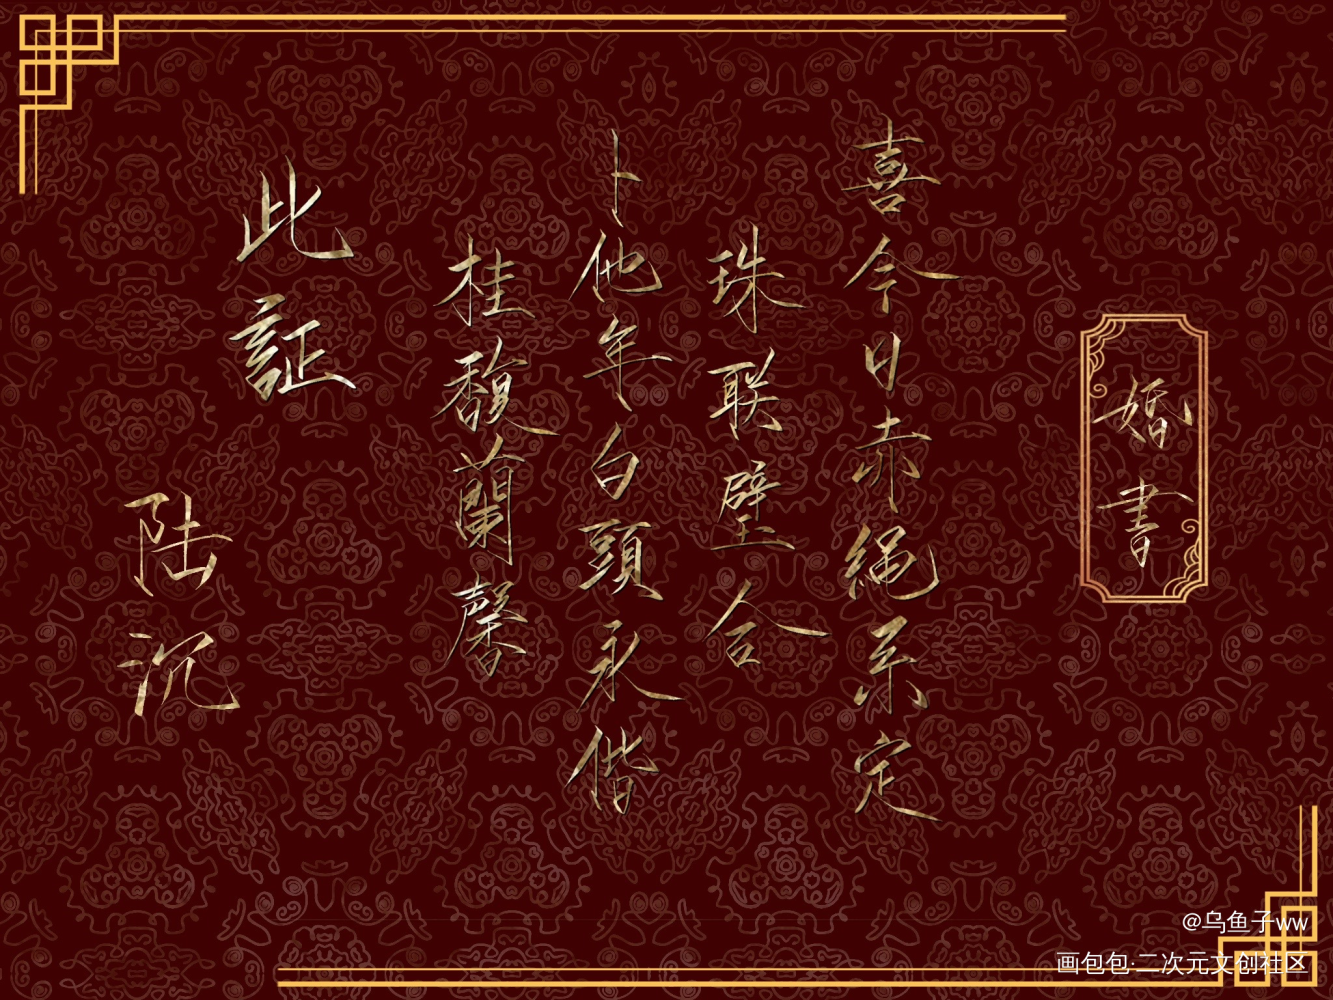 婚書
喜今日赤绳系定
珠联璧合
卜他年白頭永偕
桂馥蘭馨
此証
陆沉
@乌鱼子ww
画包包·二次元文创社区